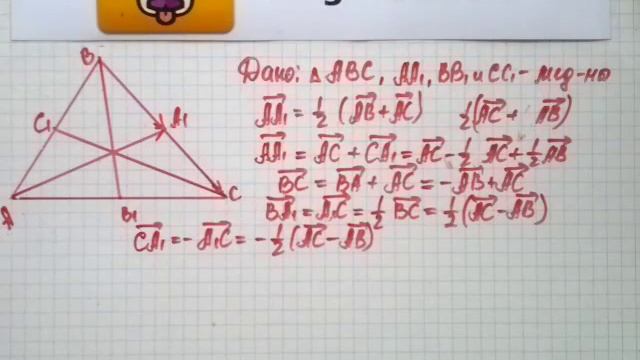 Дано: △ ABC, AA₁, BB₁ и CC₁ - мед-ны
B
C₁
A₁
A
B₁
C
AA₁ = 1/2 (AB + AC) 1/2 (AC + AB)
AA₁ = AC + CA₁ = AC - 1/2 AC + 1/2 AB
BC = BA + AC = -AB + AC
BA₁ = A₁C = 1/2 BC = 1/2 (AC - AB)
CA₁ = - A₁C = - 1/2 (AC - AB)